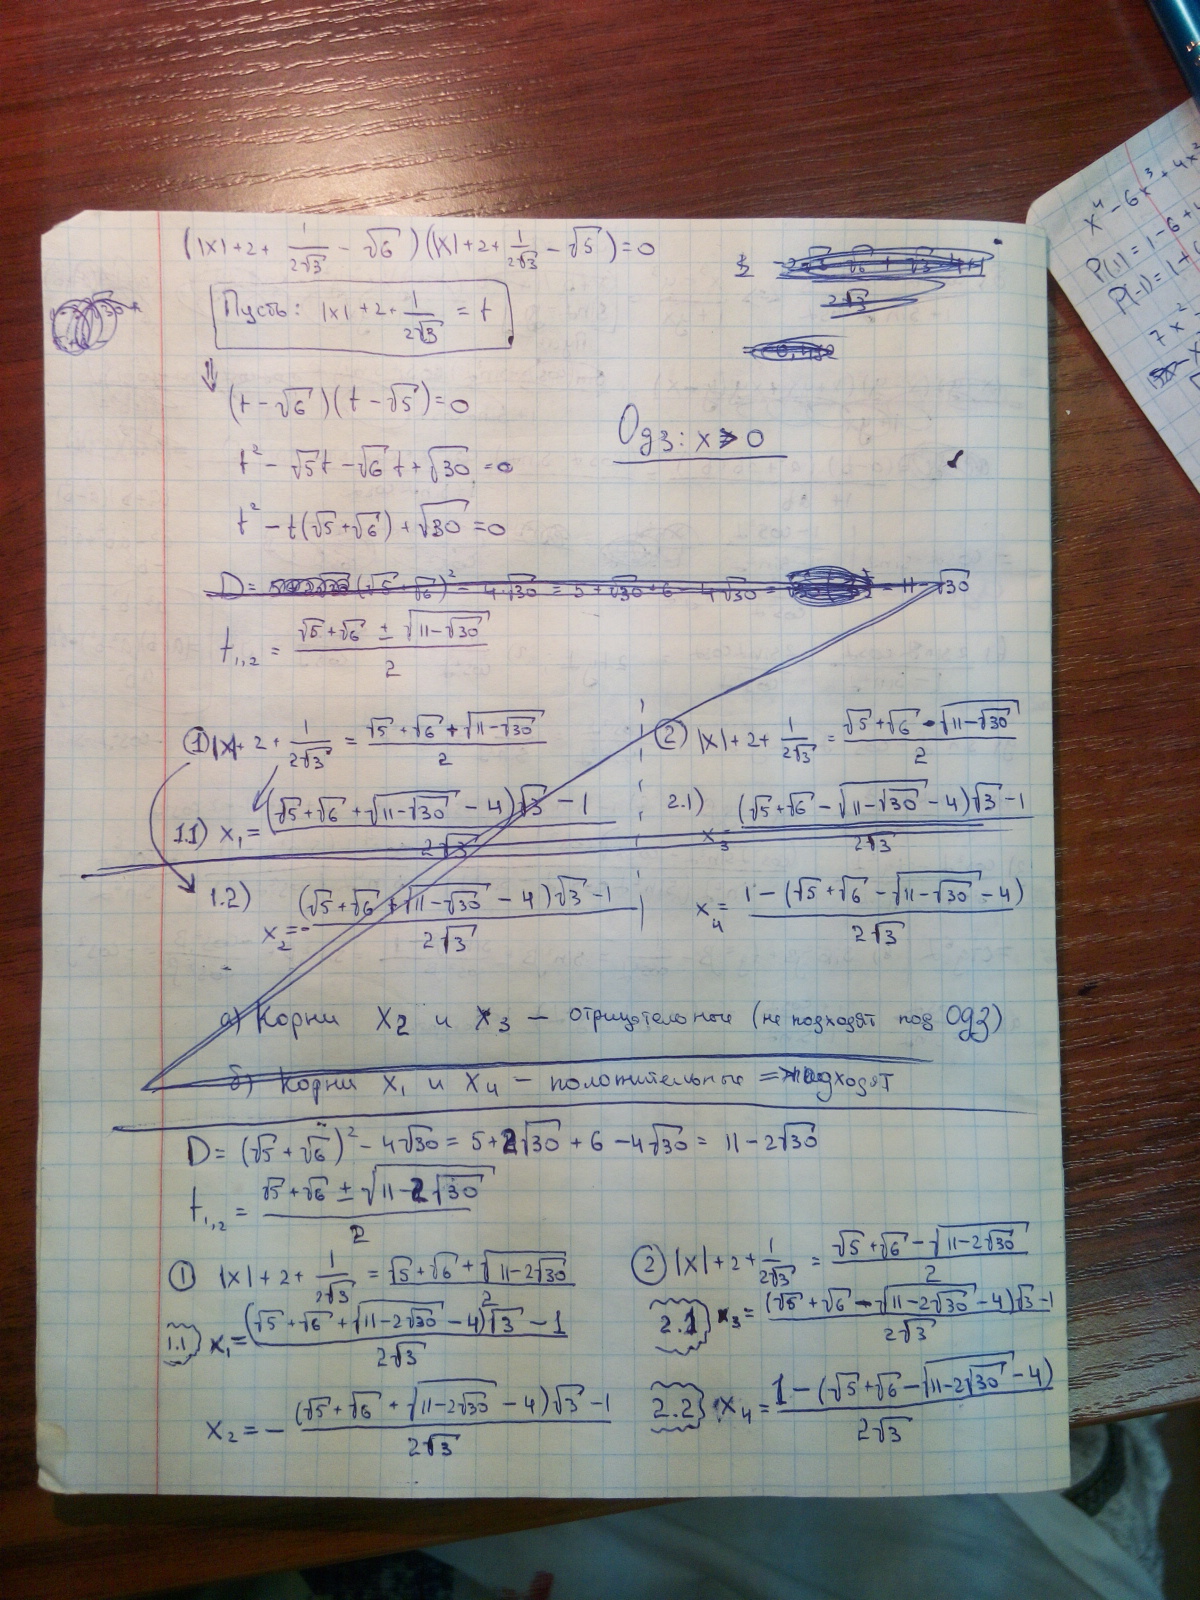 (|x|+2+ 1/(2√3) − √6)(|x|+2+ 1/(2√3) − √5)=0
Пусть: |x|+2+ 1/(2√3) = t
⇓
(t−√6)(t−√5)=0
Одз: x>0
t² − √5t − √6t + √30 = 0
t² − t(√5+√6) + √30 = 0
D= (√5+√6)² − 4√30 = 5+√30+6 − 4√30 = = 11−√30
t₁,₂ = (√5+√6 ± √(11−√30))/2
① |x|+2+ 1/(2√3) = (√5+√6+√(11−√30))/2
② |x|+2+ 1/(2√3) = (√5+√6−√(11−√30))/2
1.1) x₁= ((√5+√6+√(11−√30) −4)√3 −1)/(2√3)
2.1) x₃= ((√5+√6−√(11−√30) −4)√3−1)/(2√3)
1.2) x₂=− ((√5+√6+√(11−√30) −4)√3−1)/(2√3)
x₄= (1−(√5+√6−√(11−√30) −4))/(2√3)
а) Корни x₂ и x₃ − отрицательные (не подходят под ОДЗ)
б) Корни x₁ и x₄ − положительные => подходят
D= (√5+√6)² − 4√30 = 5+2√30+6 −4√30 = 11−2√30
t₁,₂ = (√5+√6 ± √(11−2√30))/2
① |x|+2+ 1/(2√3) = (√5+√6+√(11−2√30))/2
② |x|+2+ 1/(2√3) = (√5+√6−√(11−2√30))/2
1.1 x₁= ((√5+√6+√(11−2√30) −4)√3 −1)/(2√3)
2.1 x₃= ((√5+√6−√(11−2√30) −4)√3−1)/(2√3)
x₂ = − ((√5+√6+√(11−2√30) −4)√3−1)/(2√3)
2.2 x₄= (1−(√5+√6−√(11−2√30) −4))/(2√3)
x⁴−6x³+4x²
P(1)=1−6+
P(−1)=1+
7x²